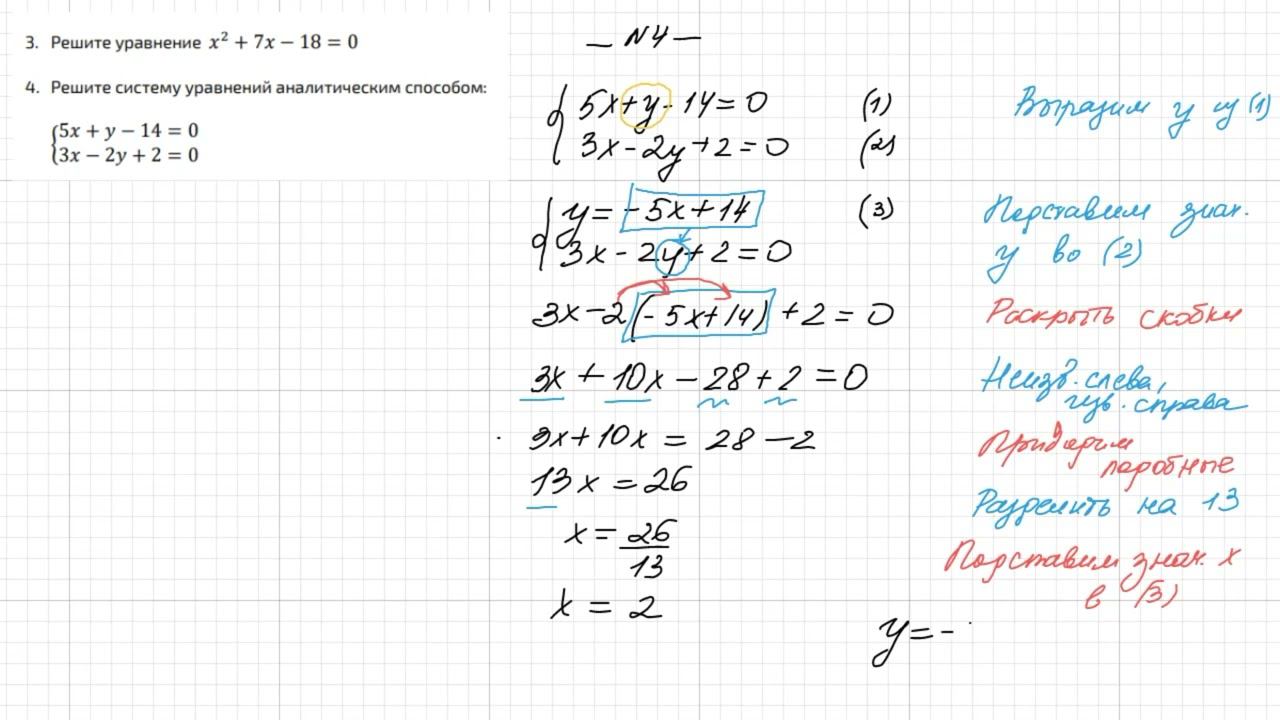 3. Решите уравнение x² + 7x − 18 = 0
4. Решите систему уравнений аналитическим способом:
{5x + y − 14 = 0
{3x − 2y + 2 = 0
— N4 —
{5x+y-14=0 (1)
Выразим y из (1)
{3x-2y+2=0 (2)
{y=-5x+14 (3)
Подставим знач.
{3x-2y+2=0
y во (2)
3x-2(-5x+14)+2=0
Раскрыть скобки
3x+10x-28+2=0
Неизв. слева,
изв. справа
3x+10x=28-2
Приведем
подобные
13x=26
Разделить на 13
x=26/13
Подставим знач. x
в (3)
x=2
y=-